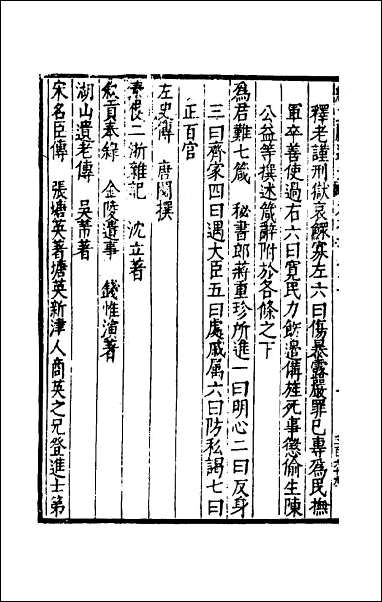 釋老謹刑獄哀鰥寡左六曰傷暴露嚴罪已專爲民撫
軍卒善使過右六曰寛民力飭邊備旌死事懲偷生陳
公益等撰述箴辭附於各條之下
爲君難七箴　秘書郎蔣重珍所進一曰明心二曰反身
三曰齊家四曰遇大臣五曰處戚属六曰防私謁七曰
正百官
左史傳　唐閱撰
二浙雜記　沈立著
欵貢奉錄　金陵遺事　錢惟演著
湖山遺老傳　吳芾著
宋名臣傳　張塘英著塘英新津人商英之兄登進士第